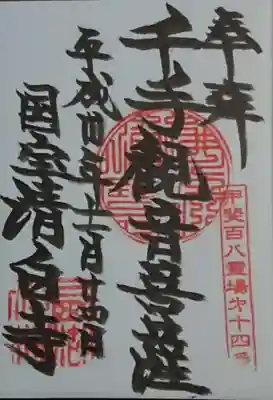 奉拝
甲斐百八霊場第十四番
千手観音菩薩
平成四年十一月廿四日
国宝清白寺